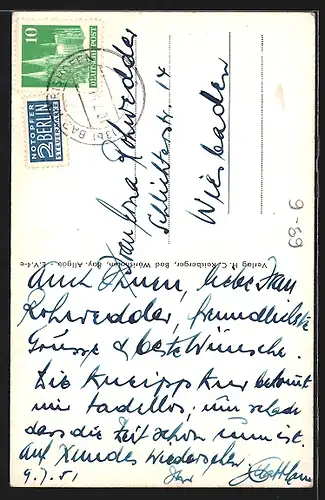 10
DEUTSCHE POST
NOTOPFER
2 BERLIN
STEUERMARKE
Frau Rohrwedder
Schlichterstr. 14
Wiesbaden
69-6
Verlag H. C. Rehberger, Bad Wörishofen, Bay. Allgäu
Auch Ihnen, liebe Frau
Rohrwedder, freundlichste
Grüsse & beste Wünsche.
Die Kneippkur bekommt
mir tadellos, nur schade
dass die Zeit schon um ist.
Auf Wiedersehen
9.7.51 Ihr